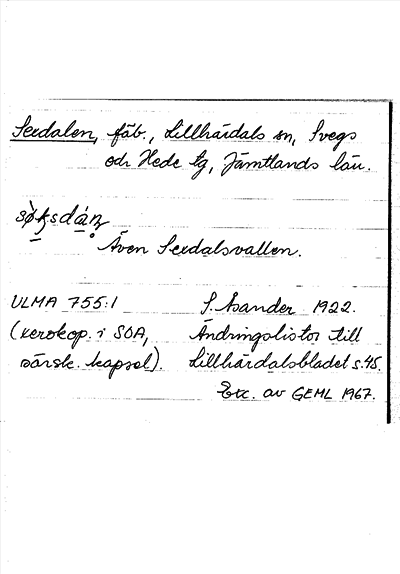 Sexdalen, fäb., Lillhärdals sn, Svegs
och Hede tg, Jämtlands län.
Även Sexdalsvallen.
ULMA 755:1 S. Asander 1922.
(xerokop. i SOA, Ändringslistor till
särsk. kapsel). Lillhärdalsbladet s. 45.
Exc. av GEML 1967.